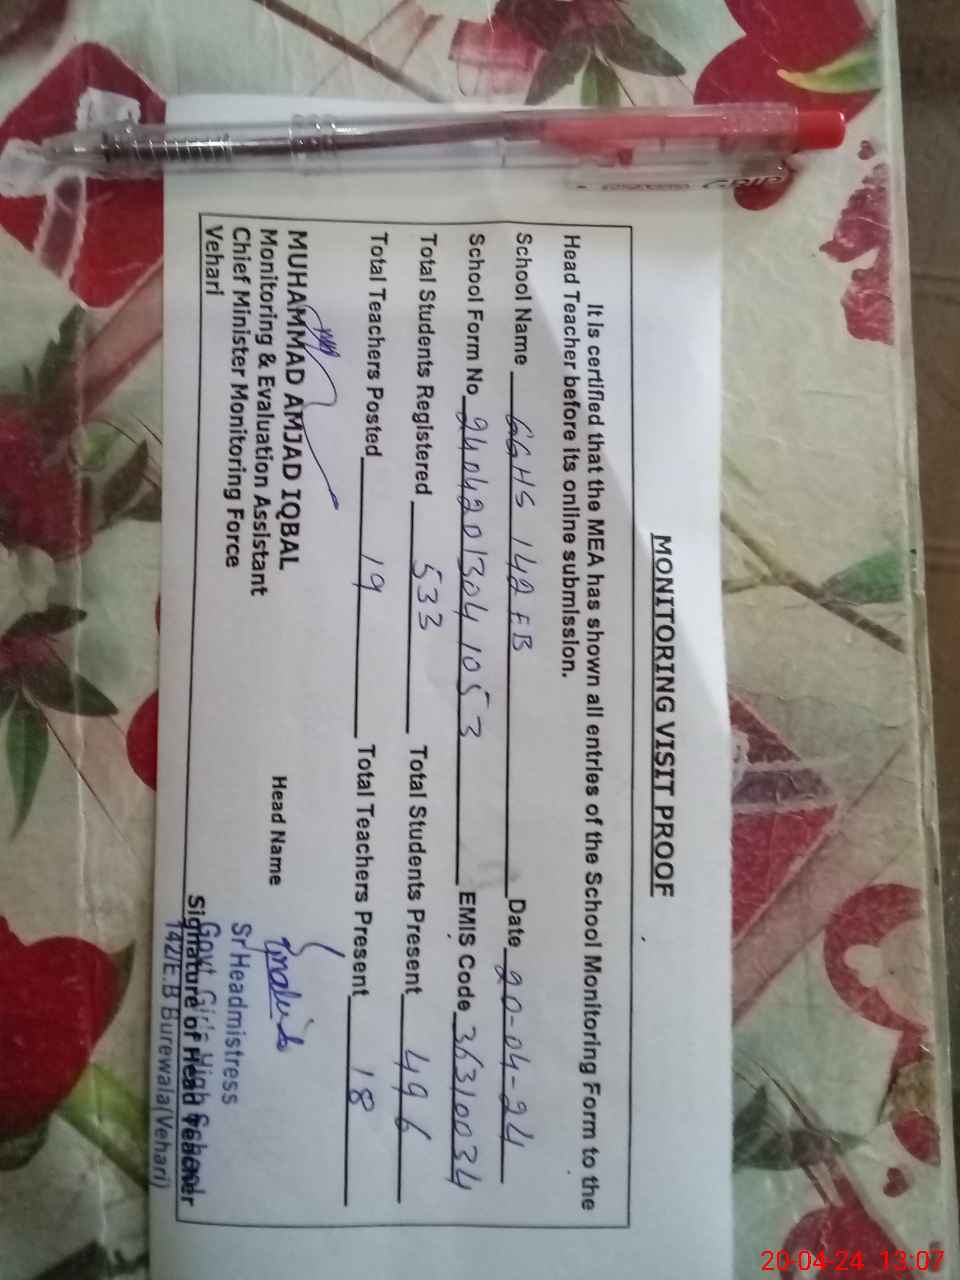 MONITORING VISIT PROOF
It is certified that the MEA has shown all entries of the School Monitoring Form to the
Head Teacher before its online submission.
School Name GGHS 142 EB Date 20-04-24
School Form No 2404201304 1053 EMIS Code 36310034
Total Students Registered 533 Total Students Present 496
Total Teachers Posted 19 Total Teachers Present 18
MUHAMMAD AMJAD IQBAL
Monitoring & Evaluation Assistant
Chief Minister Monitoring Force
Vehari
Head Name
Sr Headmistress
Govt Girls High School
Signature of Head Teacher
142/E.B Burewala(Vehari)
GRIP
20-04-24 13:07